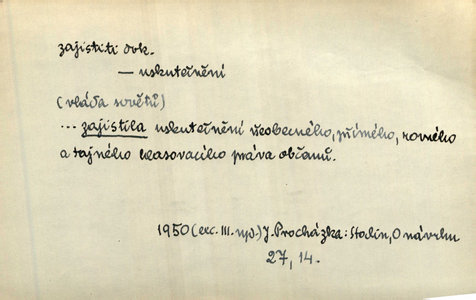 zajistiti dok.
— uskutečnění
(vláda sovětů)
... zajistila uskutečnění všeobecného, přímého, rovného
a tajného hlasovacího práva občanů.
1950 (exc. III. np.) J. Procházka: Stalin, O návrhu
27, 14.